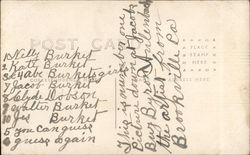 POST CARD
PLACE
STAMP
HERE
1 Nelly Burket
2 Katy Burket
3 & 4 Abe Burkets girls
7 Jacob Burket
8 Clyde Dobson
9 Walter Burket
10 Burket
5 you can guess
6 guess again
This is number one
Picture down at Jacob
Burkets
the artist from
Brookville Pa